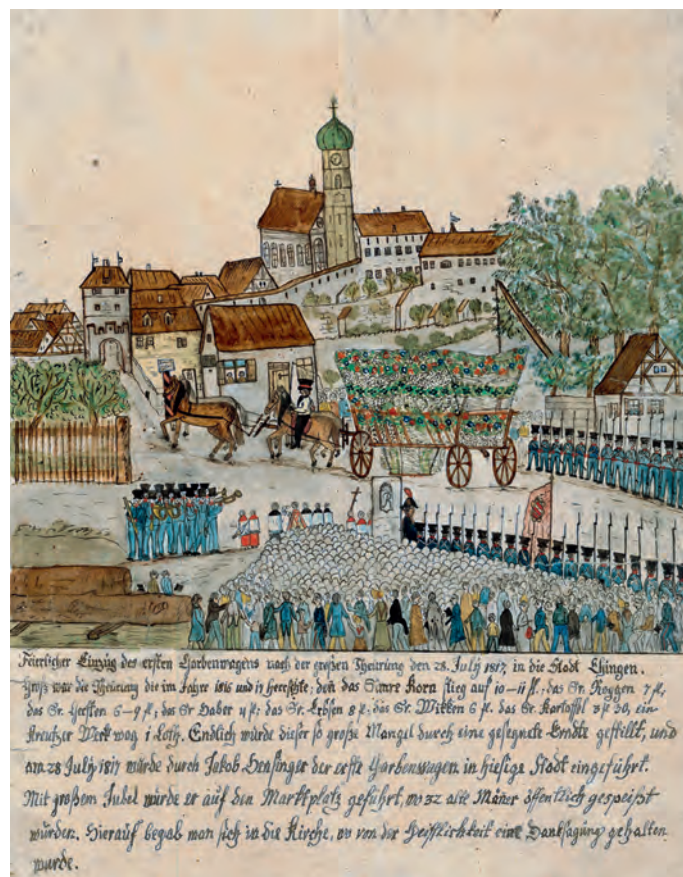 Feierlicher Einzug des ersten Garbenwagens nach der großen Theurung den 28. July 1817, in die Stadt Ehingen.
Groß war die Theurung die im Jahre 1816 und 17 herrschte; den das Simre Korn stieg auf 10–11 fl.; das Sr. Roggen 7 fl,
das Sr. Gersten 6–9 fl; das Sr Haber 4 fl; das Sr. Erbsen 8 fl; das Sr. Wikken 6 fl. das Sr. Kartoffl 3 fl 30, ein
Kreutzer Werk wog 1 Loth. Endlich wurde dieser so große Mangel durch eine gesegnete Erndte gestillt, und
am 28 July 1817 wurde durch Jakob der erste Garbenwagen in hiesige Stadt eingeführt.
Mit großem Jubel wurde er auf den Marktplatz geführt, wo 32 alte Mäner öffentlich gespeißt
wurden. Hierauf begab man sich in die Kirche, wo von der Geistlichkeit eine Danksagung gehalten
wurde.